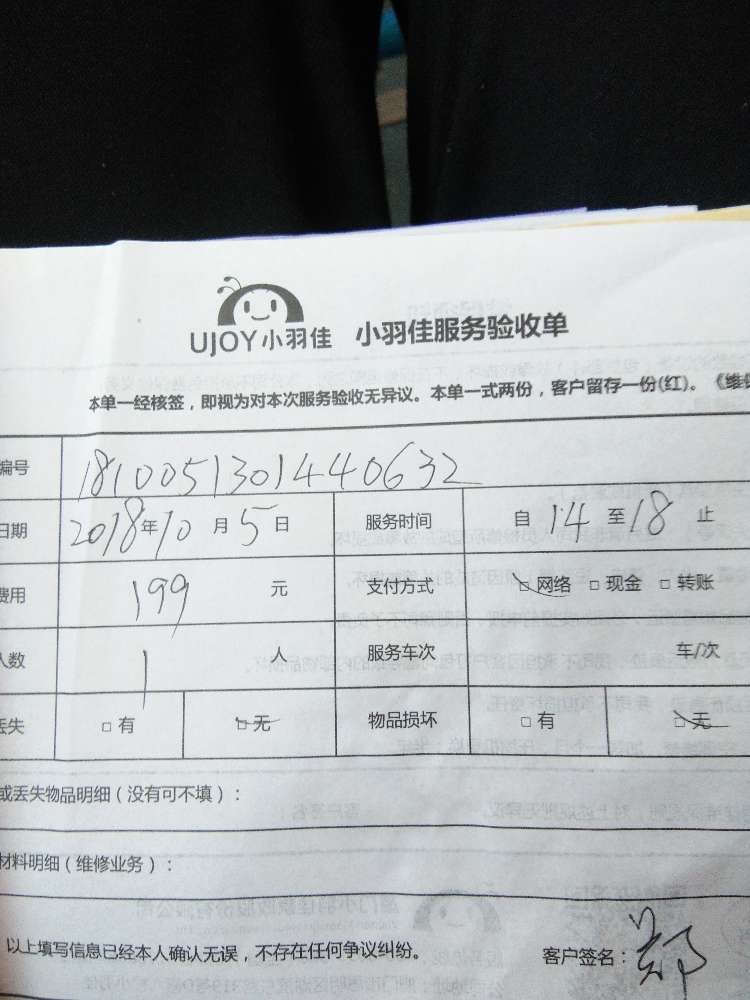 UJOY小羽佳 小羽佳服务验收单
本单一经核签，即视为对本次服务验收无异议。本单一式两份，客户留存一份(红)。《维
编号 1810051301440632
日期 2018年10月5日 服务时间 自14至18止
费用 199元 支付方式 □网络 □现金 □转账
人数 1人 服务车次 车/次
丢失 □有 □无 物品损坏 □有 □无
或丢失物品明细（没有可不填）：
材料明细（维修业务）：
以上填写信息已经本人确认无误，不存在任何争议纠纷。 客户签名：郑